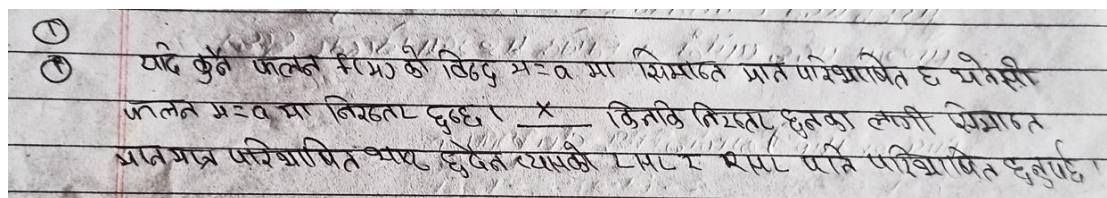 ①
① यदि कुनै फलन f(x) को विन्दु x=a मा सिमान्त मान परिभाषित छ भने सो
फलन x=a मा निरन्तर हुन्छ। X किनकि निरन्तर हुनका लागी सिमान्त
मान मात्र परिभाषित भएर हुदैन त्यसको LHL र RHL पनि परिभाषित हुनुपर्छ